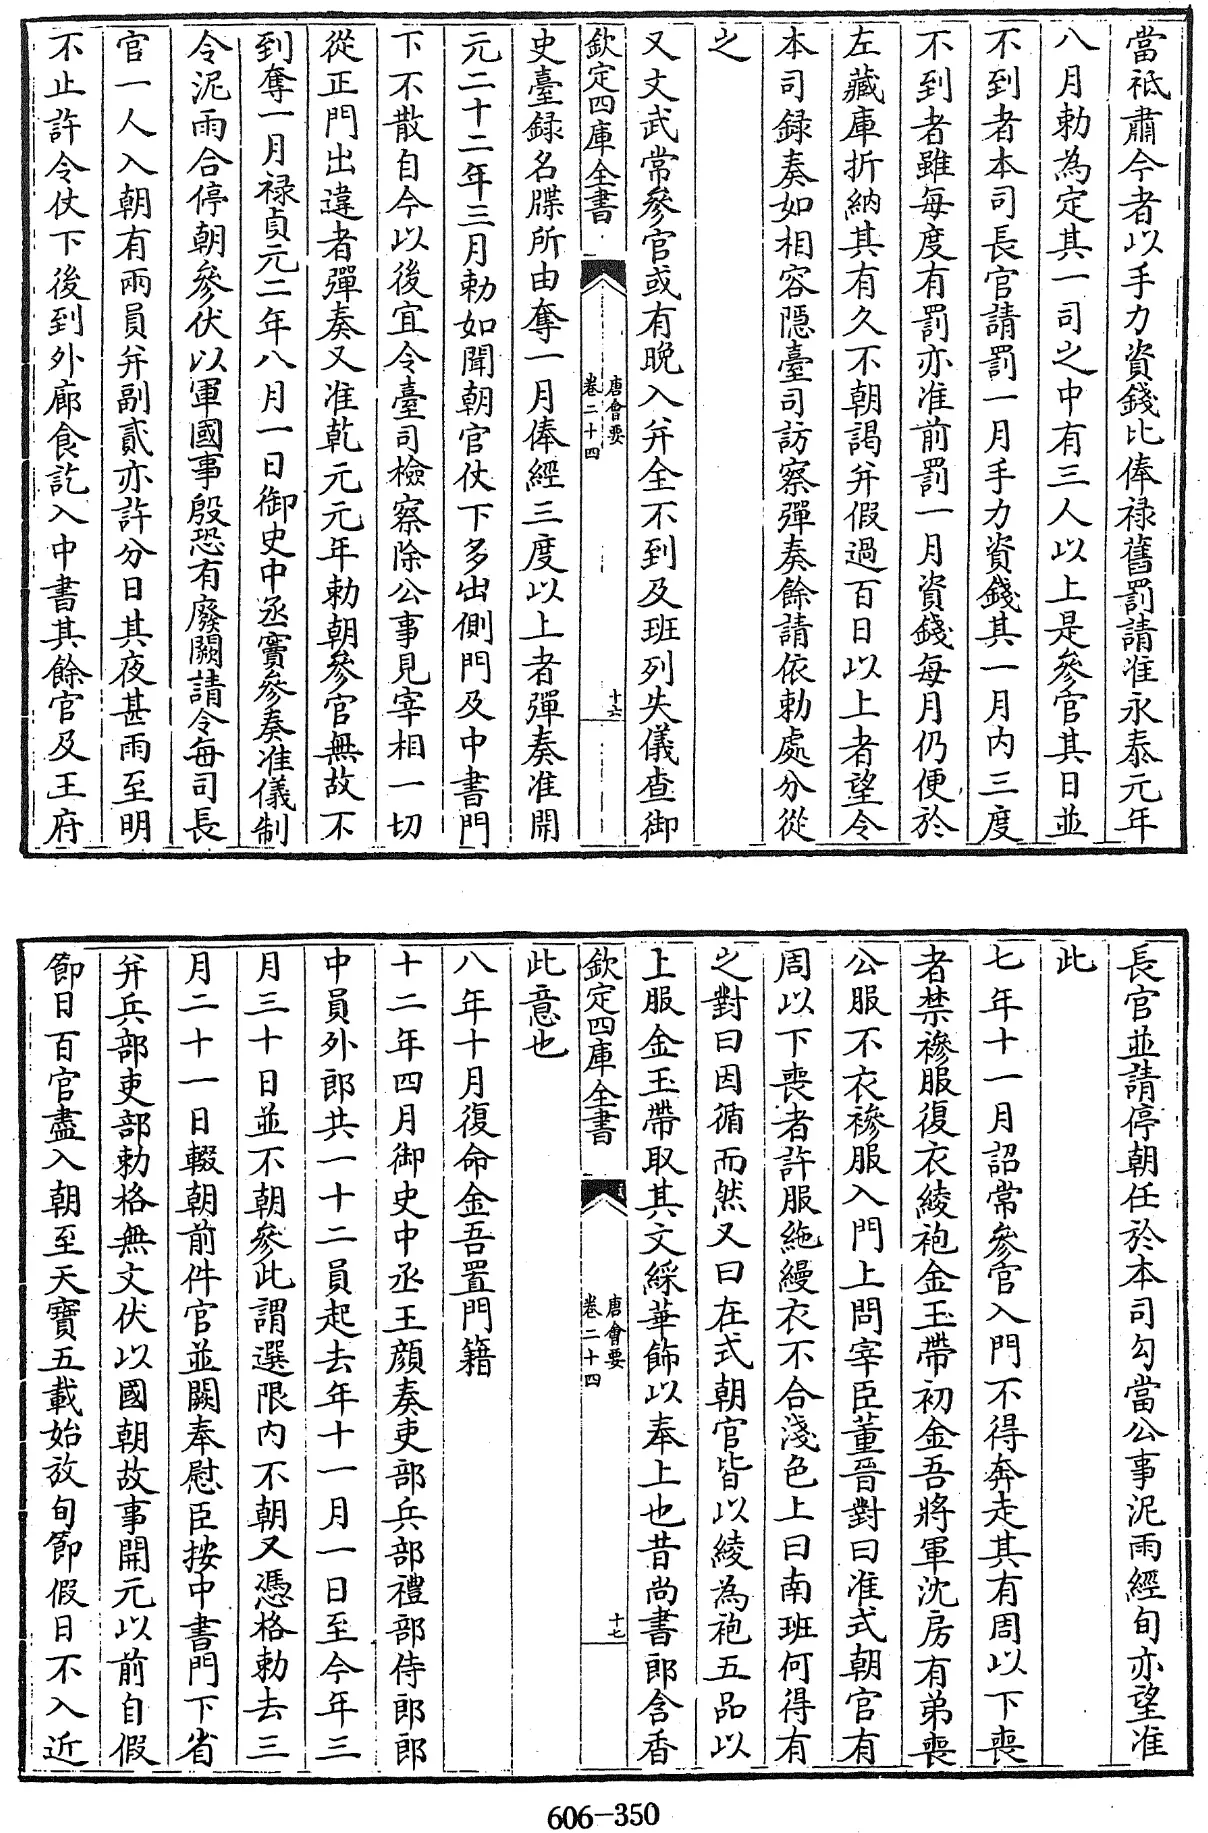 當祗肅今者以手力資錢比俸禄舊罰請准永泰元年
八月勅為定其一司之中有三人以上是參官其日並
不到者本司長官請罰一月手力資錢其一月内三度
不到者雖每度有罰亦准前罰一月資錢每月仍便於
左藏庫折納其有久不朝謁并假過百日以上者望令
本司録奏如相容隱臺司訪察彈奏餘請依勅處分從
之
又文武常參官或有晩入并全不到及班列失儀查御
欽定四庫全書
唐會要
卷二十四
十六
史臺録名牒所由奪一月俸經三度以上者彈奏准開
元二十二年三月勅如聞朝官仗下多出側門及中書門
下不散自今以後宜令臺司檢察除公事見宰相一切
從正門出違者彈奏又准乾元元年勅朝參官無故不
到奪一月禄貞元二年八月一日御史中丞竇參奏准儀制
令泥雨合停朝參伏以軍國事殷恐有廢闕請令每司長
官一人入朝有兩員并副貳亦許分日其夜甚雨至明
不止許令仗下後到外廊食訖入中書其餘官及王府
長官並請停朝任於本司勾當公事泥雨經旬亦望准
此
七年十一月詔常參官入門不得奔走其有周以下喪
者禁襂服復衣綾袍金玉帶初金吾將軍沈房有弟喪
公服不衣襂服入門上問宰臣董晉對曰准式朝官有
周以下喪者許服絁縵衣不合淺色上曰南班何得有
之對曰因循而然又曰在式朝官皆以綾為袍五品以
上服金玉帶取其文綵華飾以奉上也昔尚書郎含香
欽定四庫全書
唐會要
卷二十四
十七
此意也
八年十月復命金吾置門籍
十二年四月御史中丞王顔奏吏部兵部禮部侍郎郎
中員外郎共一十二員起去年十一月一日至今年三
月三十日並不朝參此謂選限内不朝又憑格勅去三
月二十一日輟朝前件官並闕奉慰臣按中書門下省
并兵部吏部勅格無文伏以國朝故事開元以前自假
節日百官盡入朝至天寶五載始放旬節假日不入近
606-350